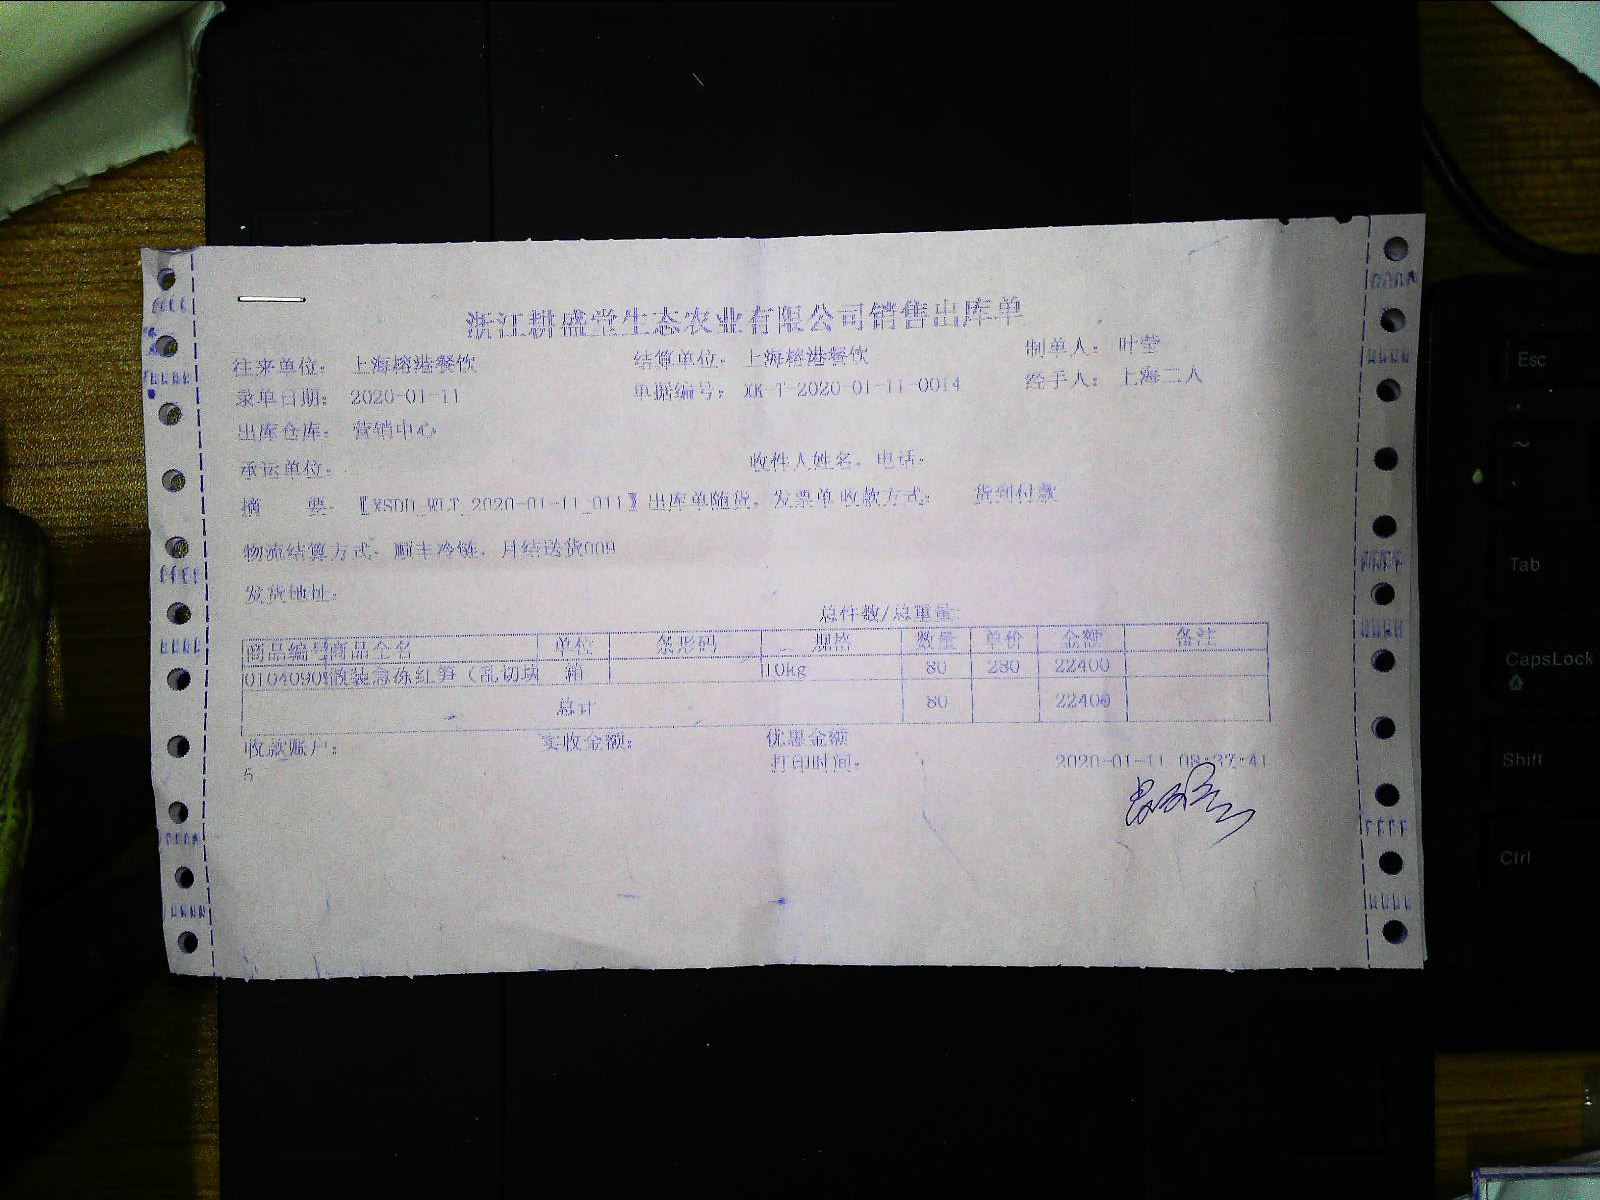 浙江耕盛堂生态农业有限公司销售出库单
往来单位： 上海榕港餐饮 结算单位： 上海榕港餐饮 制单人： 叶莹
录单日期： 2020-01-11 单据编号： XK-T-2020-01-11-0014 经手人： 上海二人
出库仓库： 营销中心
承运单位： 收件人姓名、电话：
摘 要： 【XSDD_WLT_2020-01-11_011】出库单随货，发票单 收款方式： 货到付款
物流结算方式：顺丰冷链，月结送货009
发货地址：
总件数/总重量：
商品编号 商品全名 单位 条形码 规格 数量 单价 金额 备注
0104090 冻红笋（乱切块 箱 10kg 80 280 22400
总计 80 22400
收款账户： 实收金额： 优惠金额
5 打印时间： 2020-01-11 08:37:41
Esc
Tab
CapsLock
Shift
Ctrl